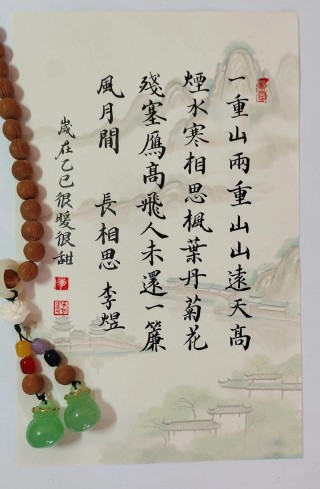 一重山兩重山山遠天高
煙水寒相思楓葉丹菊花
殘塞鴈高飛人未還一簾
風月閒 長相思 李煜
歲在乙巳很暖很甜